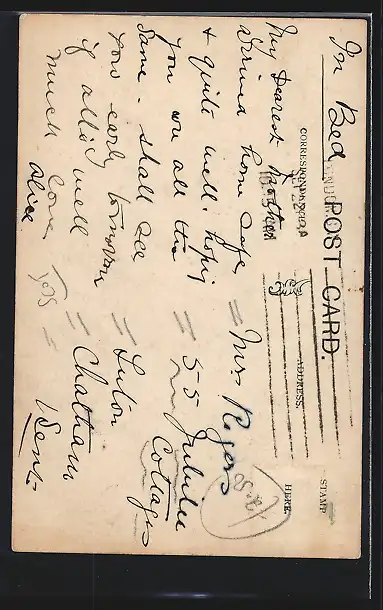 In Bed
POST CARD.
CORRESPONDENCE.
ADDRESS.
STAMP
HERE.
My dearest Mother
Arrived home safe
& quite well. hoping
you are all the
same. shall see
you early tomorrow
if all is well
much love
Alice
Mrs Rogers
55 Jubilee
Cottages
Luton
Chatham
Kent